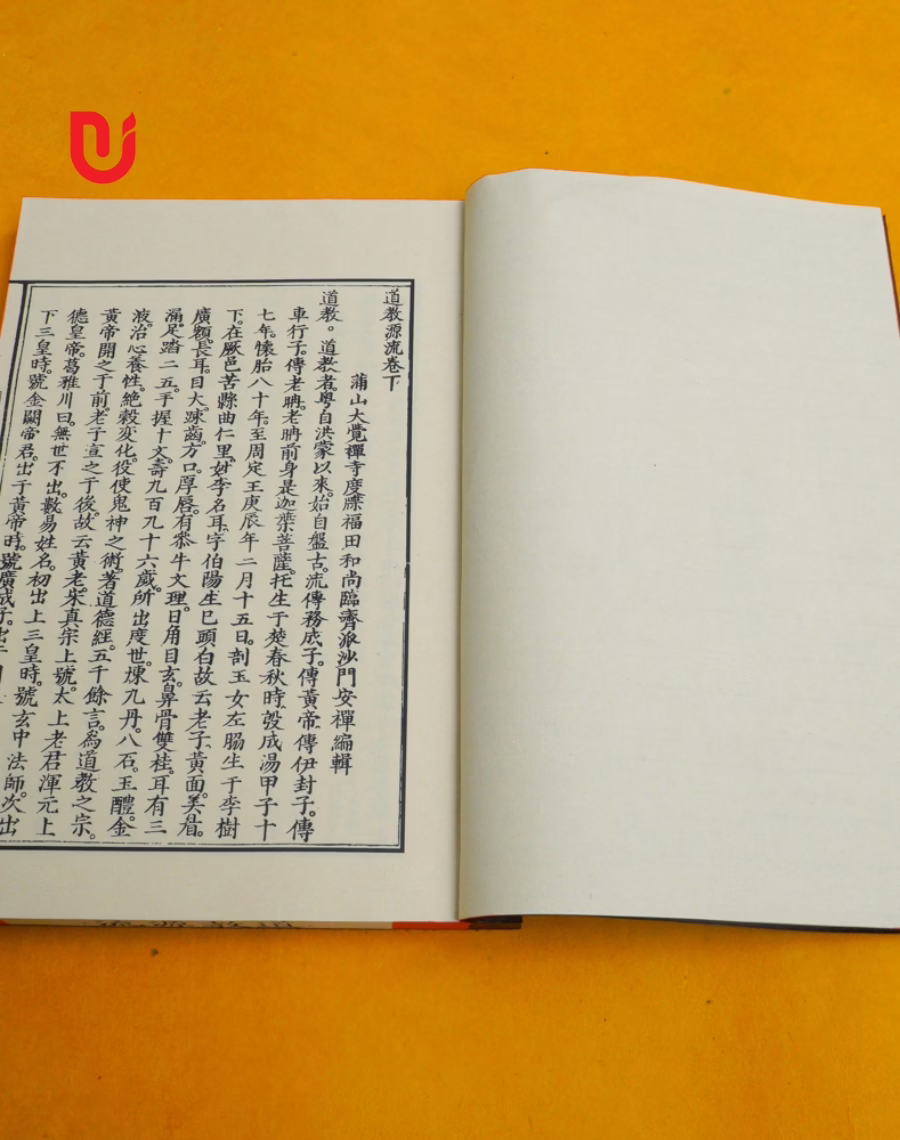 道教源流卷下
蒲山大覺禪寺度牒福田和尚臨濟派沙門安禪編輯
道教。道教者。粤自洪蒙以來。始自盤古。流傳務成子。傳黃帝。傳伊封子。傳
車行子。傳老聃。老聃前身是迦葉菩薩。托生于楚春秋時。殷成湯甲子十
七年。懷胎八十年。至周定王庚辰年二月十五日。剖玉女左脇生于李樹
下。在厥邑苦縣曲仁里。姓李名耳。字伯陽。生已頭白故云老子。黃面。美眉。
廣顙。長耳。目大。踈齒。方口。厚唇。有叅牛文理。日角目玄。鼻骨雙柱。耳有三
漏。足踏二五。手握十文。壽九百九十六歲。所出度世。煉九丹。八石。玉醴。金
液。治心養性。絶穀変化。役使鬼神之術。著道德經。五千餘言。為道教之宗。
黃帝開之于前。老子宣之于後。故云黃老。宋真宗上號。太上老君渾元上
德皇帝。葛雅川曰。無世不出。數易姓名。初出上三皇時。號玄中法師。次出
下三皇時。號金闕帝君。出于黃帝時。號廣成子。出于